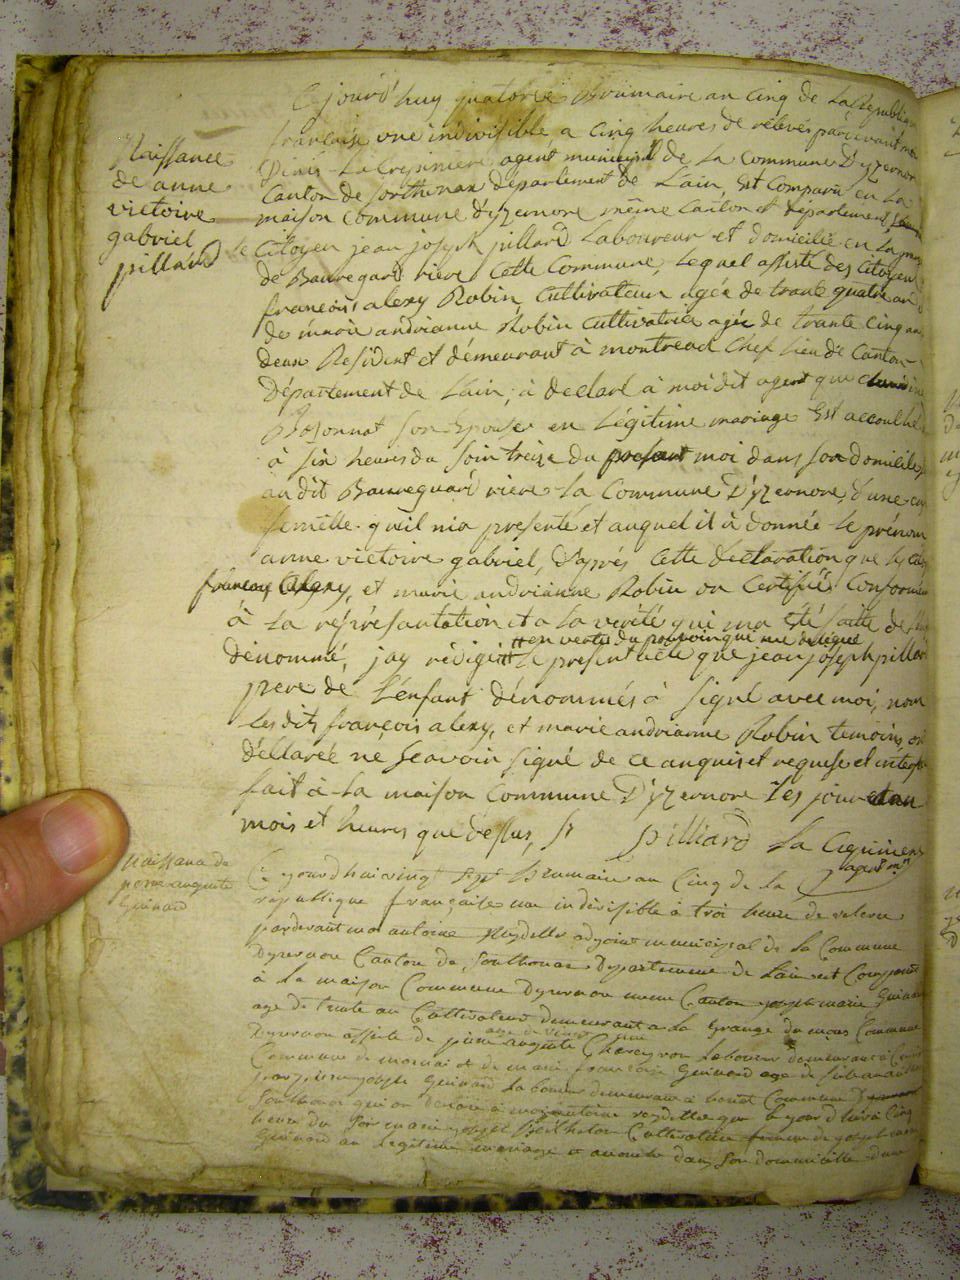 Naissance
de anne
victoire
gabriel
pillard
Ce jourd'huy quatorze Brumaire an cinq de la Republique
francaise une indivisible a cinq heures de relevés pardevant moi
Denis La Crepiniere agent municipal de la commune D'yzernore
Canton de Sonthonax departement de L'ain, Est Comparu en La
maison commune d'yzernore même Canton et departement
le Citoyen jean joseph pillard Laboureur et domicilié en La
de Beauregard riere cette Commune, Lequel assisté des Citoyen
francois alexy Robin, Cultivateur agée de trante quatre an
de marie andrianne Robin cultivatrice agée de trante cinq an
deux Resident et demeurant à montread Chef lieu de Canton
Département de L'ain; à declaré à moi dit agent que
Bozonnat son Epouse en Légitime mariage Est accouché
à six heures du soir treize du presant moi dans son domicile
au dit Beaureguard riere la Commune D'yzernore, d'une
femelle qu'il m'a presenté et auquel il à donnée le prénom
anne victoire gabriel, D'après Cette declaration que les
francois Alexy, et marie andrianne Robin on Certifiés Conforme
à La représantation et a la verité qui ma Eté faite de
en vertu du pouvoir qui me delegué
dénommé, j'ay rédigé le present acte que jean joseph pillard
pere de L'enfant dénommés à signé avec moi, non
les dits françois alexy, et marie andrianne Robin temoins, on
déllarée ne Scavoir signé de ce anquis et requise et
fait à La maison Commune D'yzernore Les jour et an
mois et heures que dessus,
pilliard La Crepiniere
agent m
Naissance de
pierre auguste
Guinard
Ce jourd'hui vingt sept brumaire an Cinq de la
republique française une indivisible à troi heure de releveé
pardevant moi antoine Reydellet adjoint municipal de la Commune
Dysernore Canton de Sonthonax Departemene de Lain est Comparu
à la maison Commune Dysernore meme Canton joseph marie Guinard
age de trente an Cultivateur demeurant a la Grange du Commune
Dysernore assisté de pierre auguste Laboureur demeurant à
age de vingt
Commune de mornai et de marie francoise Guinard age de
joseph Guinard Laboureur demeurant à Commune
Sonthonax qui on Declaré à moi antoine reydellet que ce jour d'hui à Cinq
heure du Soir marie Berthelon Cultivatrice femme de joseph marie
Guinard an Legitime mariage et acouché dans son dommicille d'une